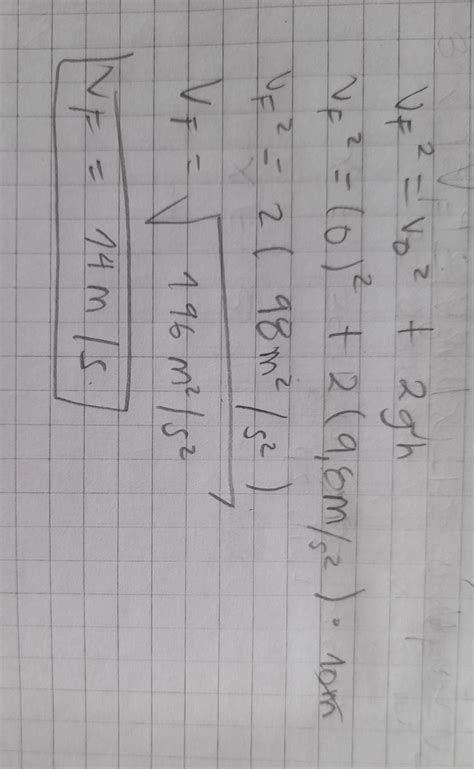 V_F² = V_0² + 2gh
V_F² = (0)² + 2(9,8m/s²) · 10m
V_F² = 2(98m²/s²)
V_F = √196 m²/s²
V_F = 14m/s